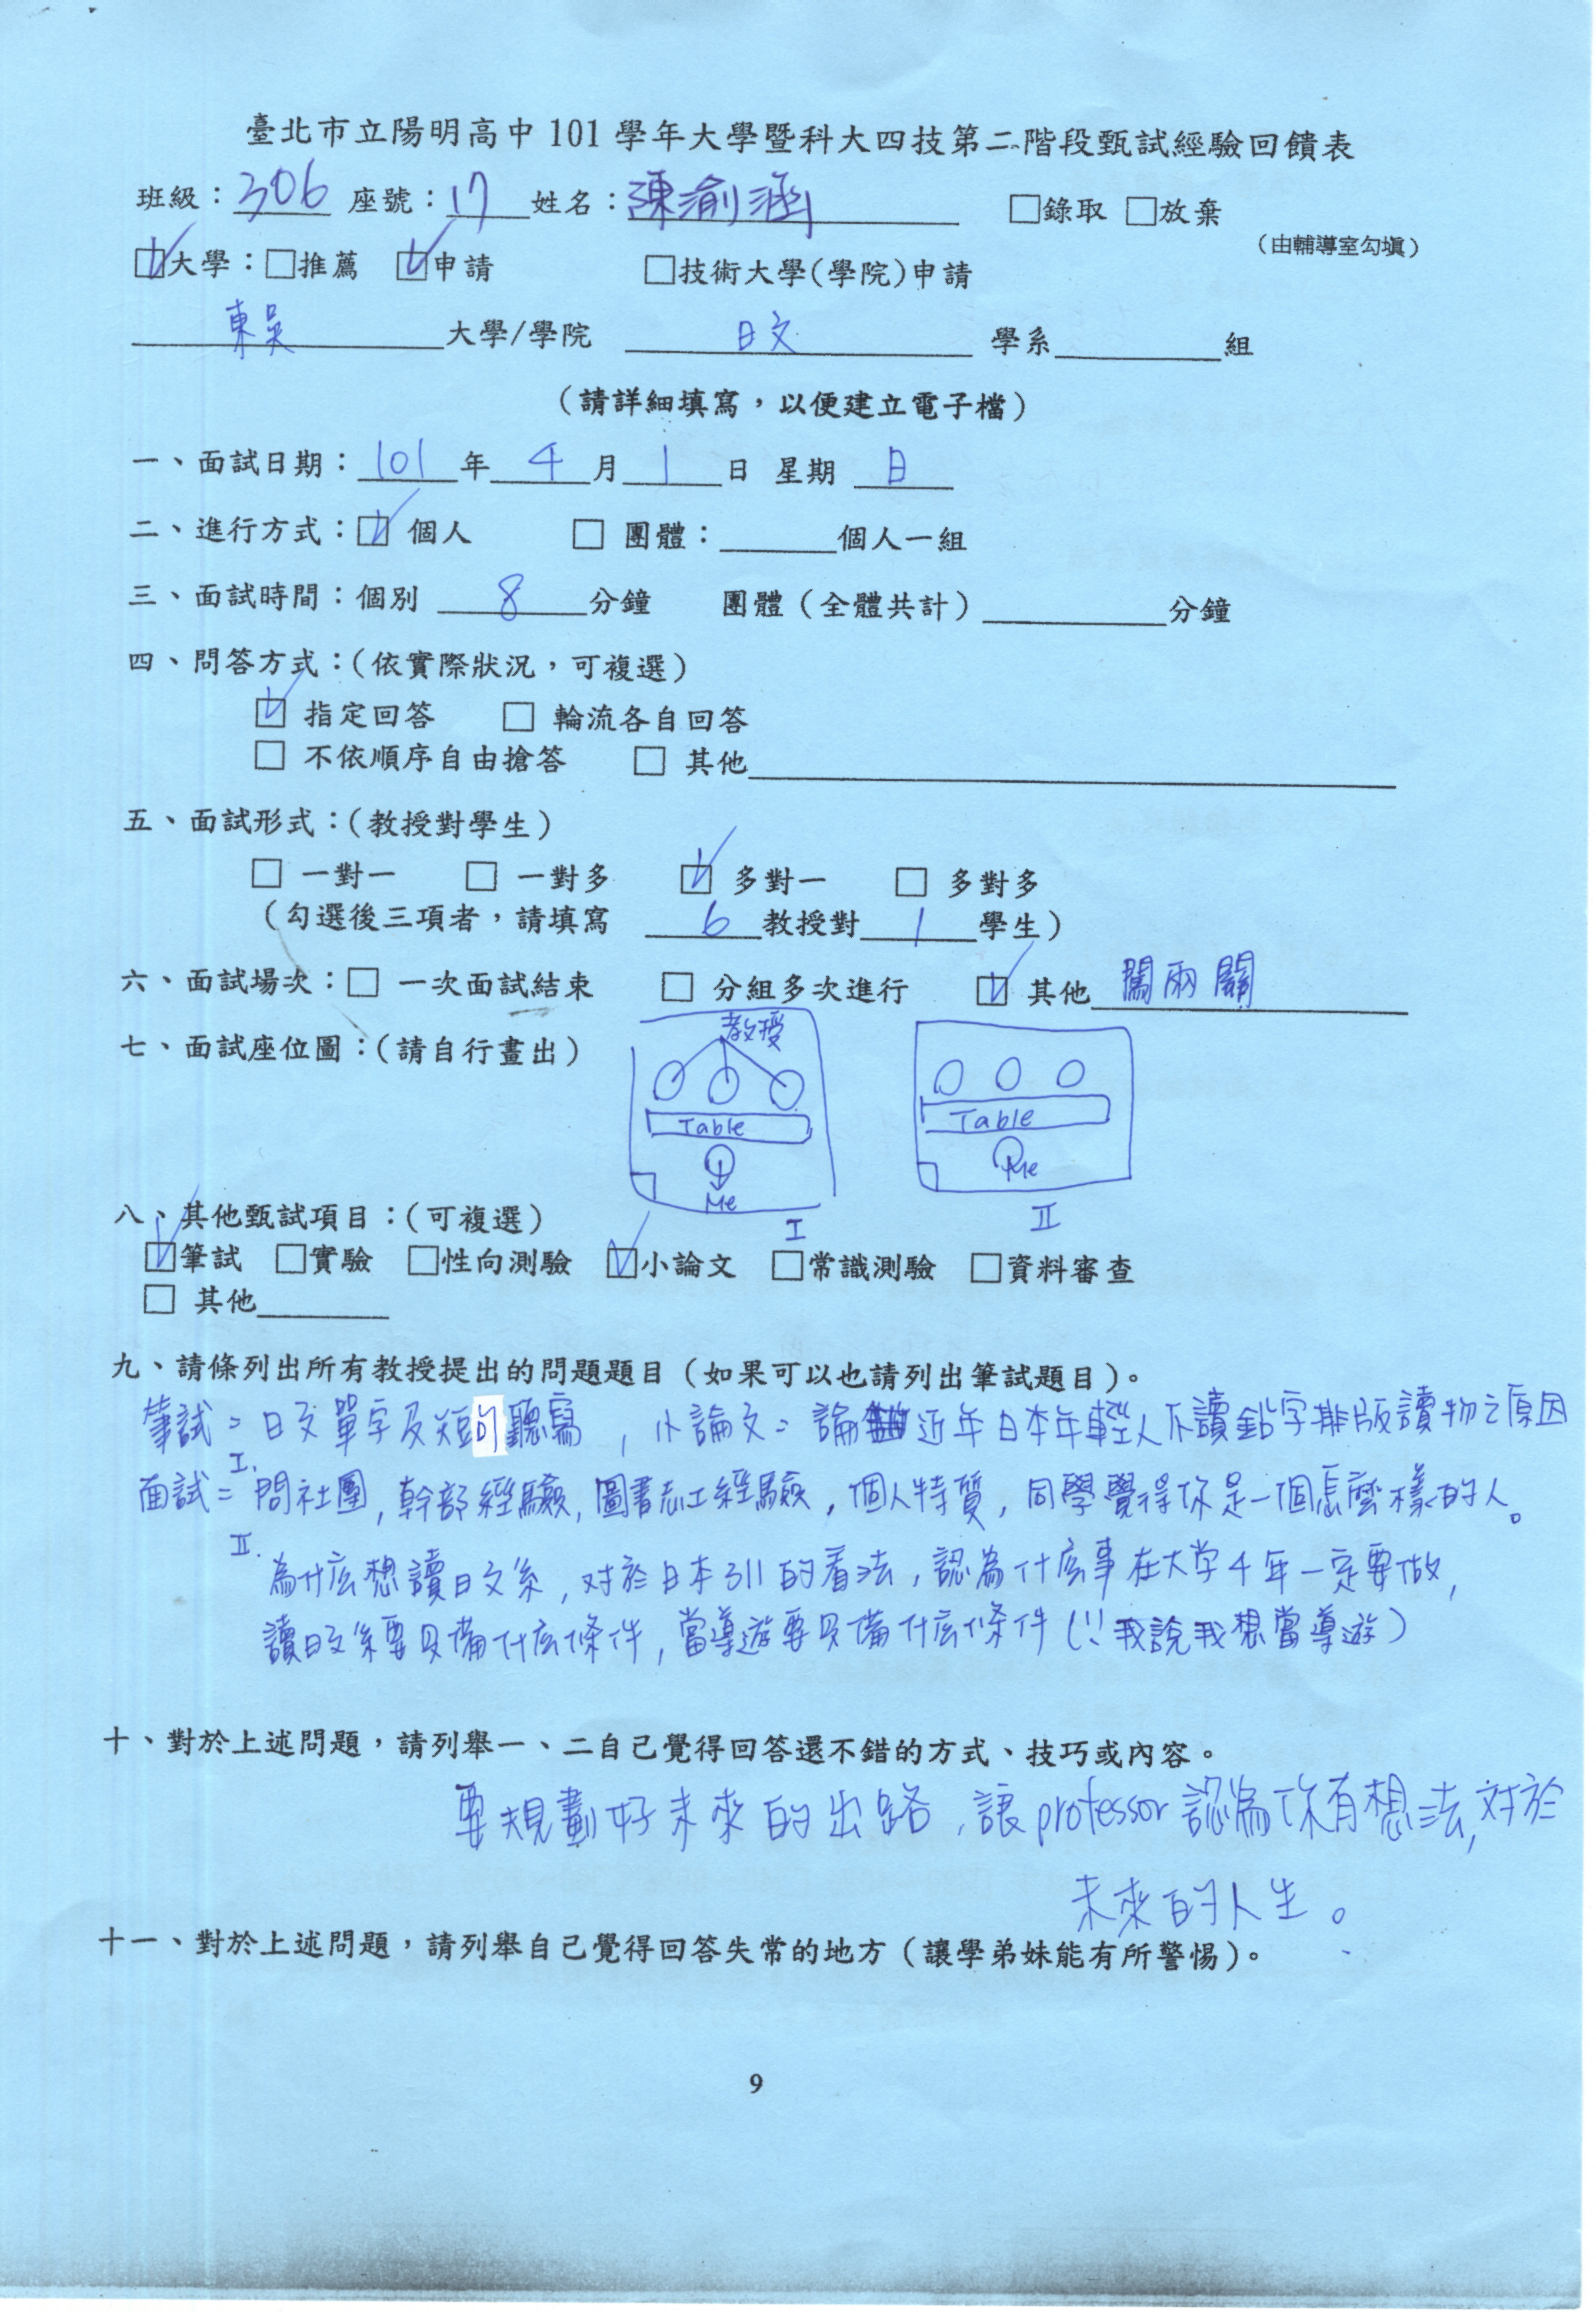 臺北市立陽明高中 101 學年大學暨科大四技第二階段甄試經驗回饋表
班級：306 座號：17 姓名：陳渝涵 □錄取 □放棄
（由輔導室勾填）
☑大學：□推薦 ☑申請 □技術大學(學院)申請
東吳大學/學院 日文 學系______組
（請詳細填寫，以便建立電子檔）
一、面試日期：101年4月1日 星期日
二、進行方式：☑ 個人 □ 團體：______個人一組
三、面試時間：個別 8 分鐘 團體（全體共計）______分鐘
四、問答方式：（依實際狀況，可複選）
☑ 指定回答 □ 輪流各自回答
□ 不依順序自由搶答 □ 其他______
五、面試形式：（教授對學生）
□ 一對一 □ 一對多 ☑ 多對一 □ 多對多
（勾選後三項者，請填寫 6 教授對 1 學生）
六、面試場次：□ 一次面試結束 □ 分組多次進行 ☑ 其他 闖兩關
七、面試座位圖：（請自行畫出）
教授
Table Table
Me Me
I II
八、其他甄試項目：（可複選）
☑筆試 □實驗 □性向測驗 ☑小論文 □常識測驗 □資料審查
□ 其他______
九、請條列出所有教授提出的問題題目（如果可以也請列出筆試題目）。
筆試=日文單字及短句聽寫，小論文=論近年日本年輕人不讀鉛字排版讀物之原因
面試= I. 問社團，幹部經驗，圖書志工經驗，個人特質，同學覺得你是一個怎麼樣的人。
II. 為什庅想讀日文系，对於日本311的看法，認為什庅事在大学4年一定要做，
讀日文系要具備什庅條件，當導遊要具備什庅條件(∵我說我想當導遊)
十、對於上述問題，請列舉一、二自己覺得回答還不錯的方式、技巧或內容。
要規劃好未來的出路，讓professor認為你有想法，对於
未來的人生。
十一、對於上述問題，請列舉自己覺得回答失常的地方（讓學弟妹能有所警惕）。
9